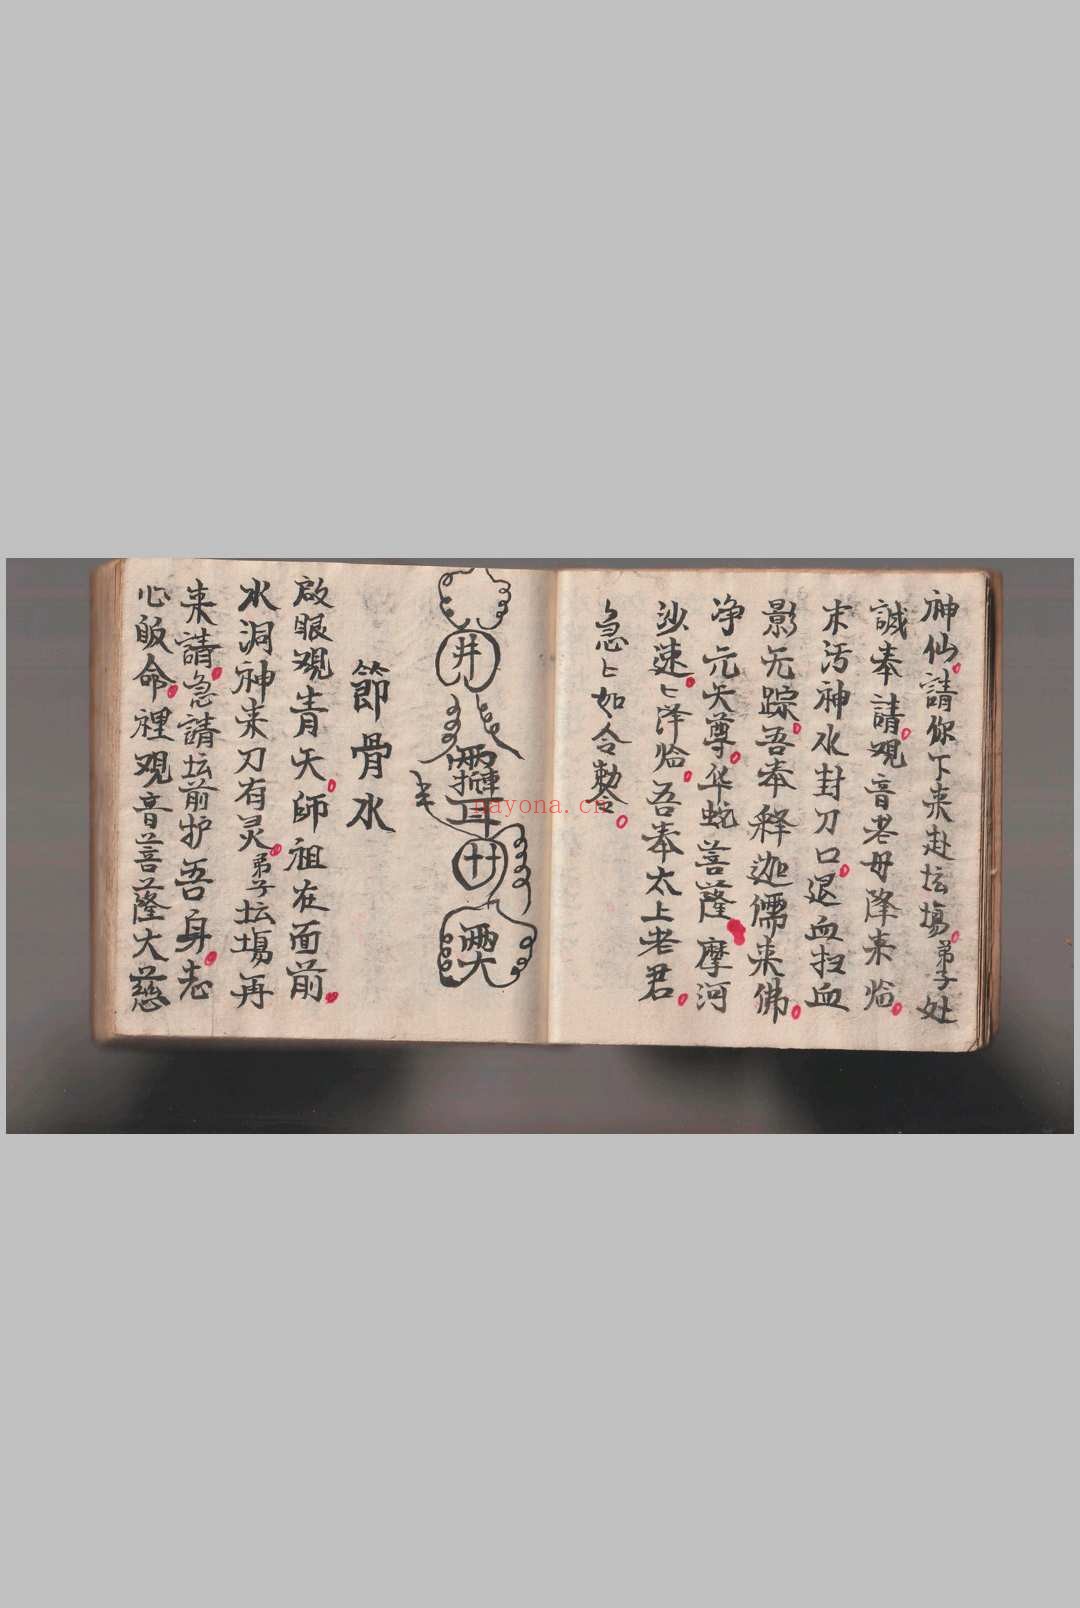 神仙请你下来赴坛場弟子处
誠奉請观音老母降来临
末污神水封刀口退血扫血
影无踪吾奉释迦儒来佛
净元天尊华蛇菩薩摩河
沙速〻降临吾奉太上老君
急〻如令勅令
井
耳
廿
節骨水
啟眼观青天師祖在面前
水洞神来刀有灵弟子坛場再
来請急請坛前护吾身志
心皈命裡观音菩薩大慈
nayona.cn